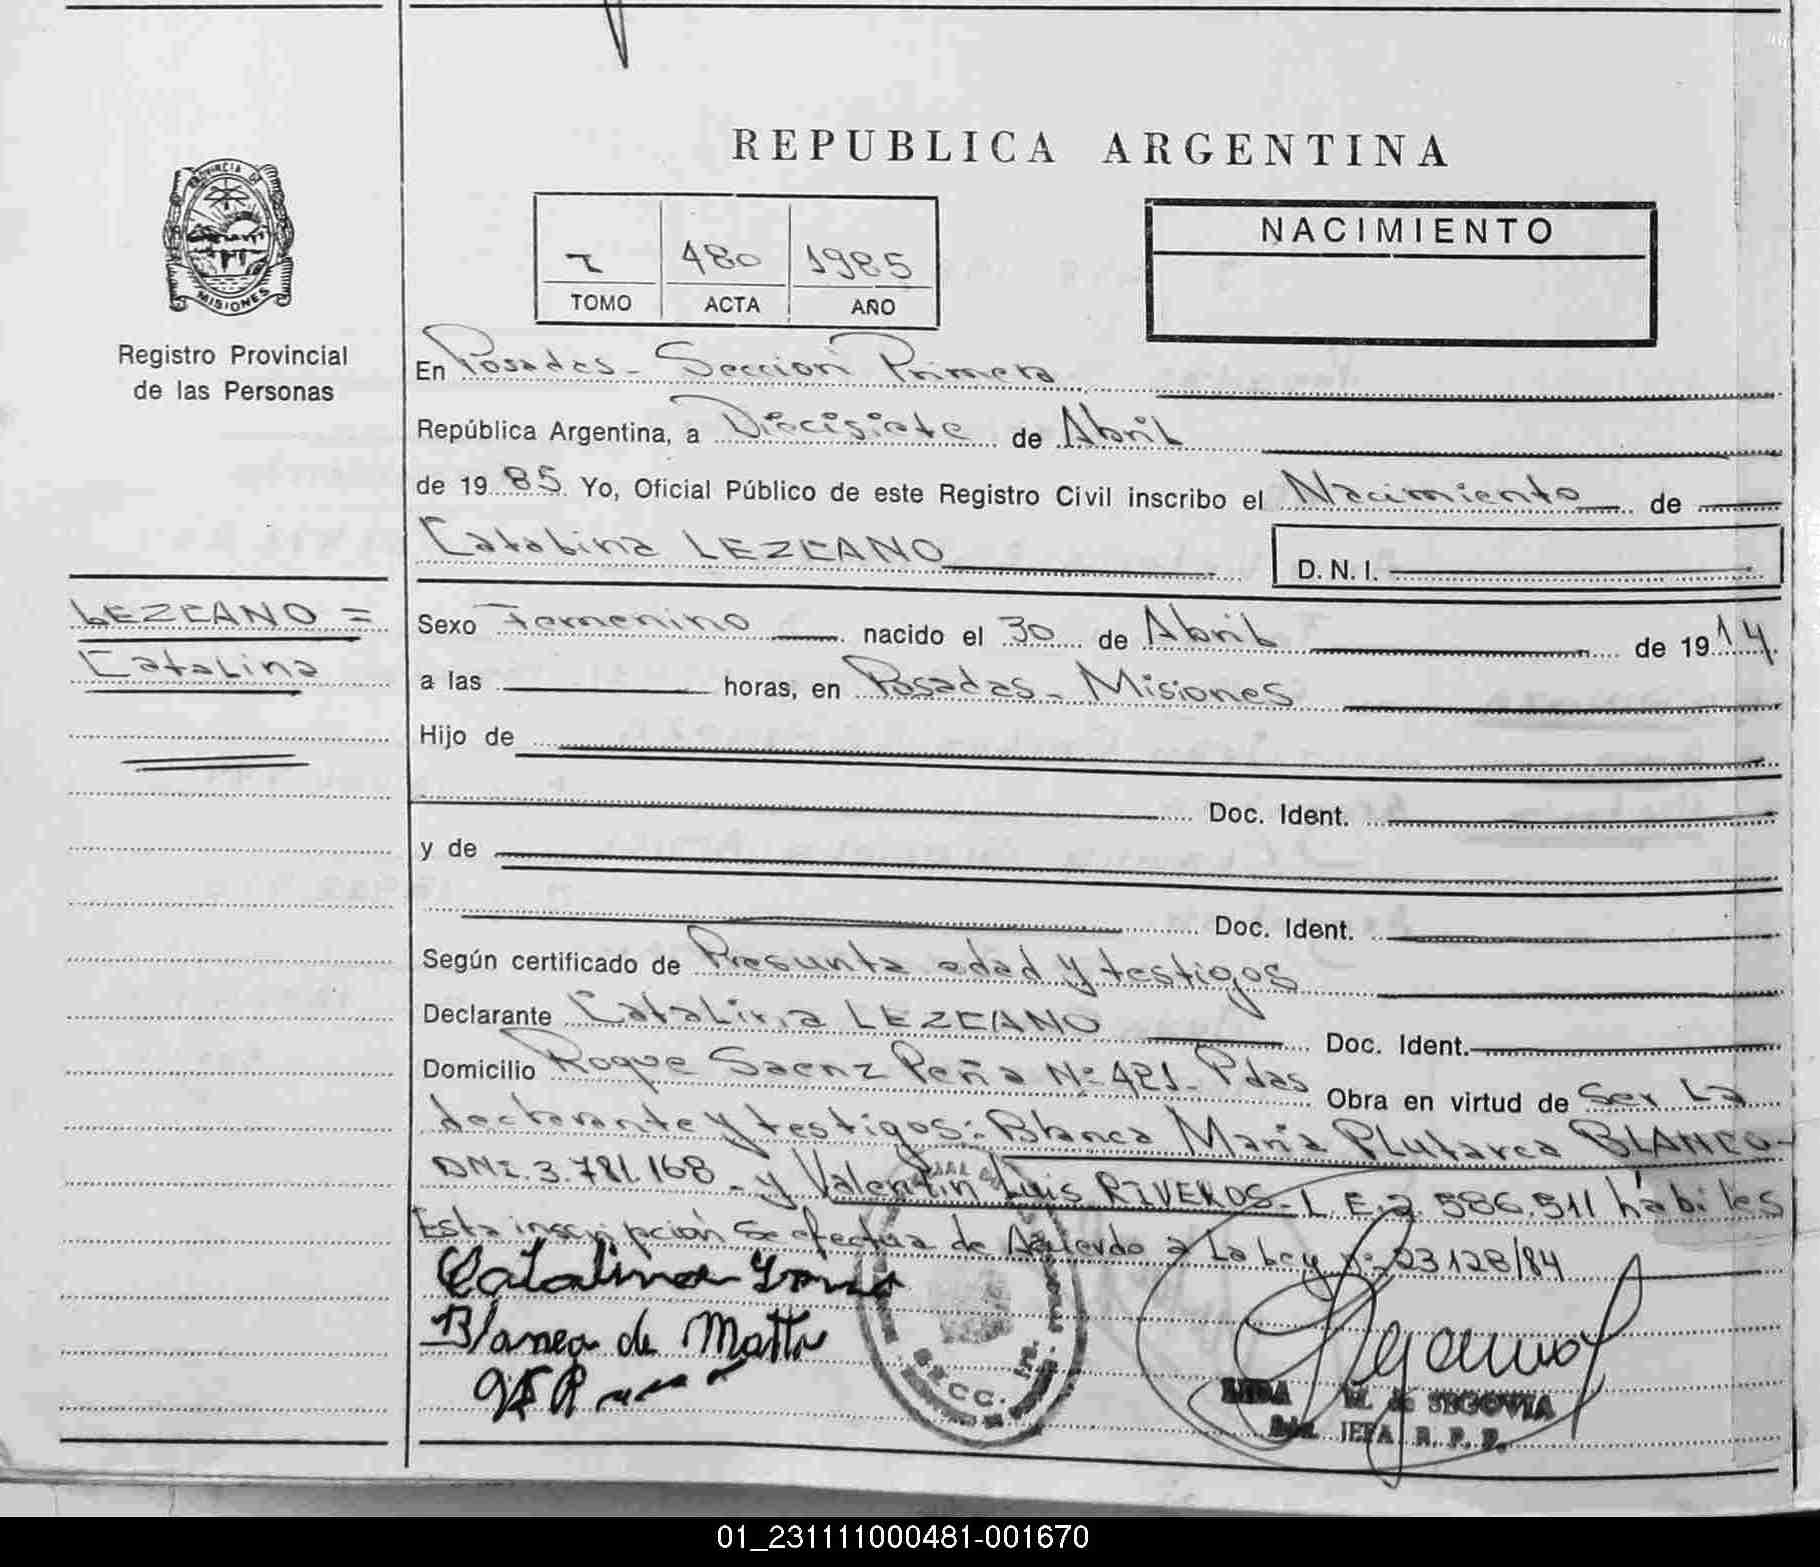 REPUBLICA ARGENTINA
PROVINCIA DE
MISIONES
Registro Provincial
de las Personas
I 480 1985
TOMO ACTA AÑO
NACIMIENTO
En Posadas - Sección Primera
República Argentina, a Diecisiete de Abril
de 1985. Yo, Oficial Público de este Registro Civil inscribo el Nacimiento de
Catalina LEZCANO
D. N. I.
LEZCANO =
Catalina
Sexo Femenino nacido el 30 de Abril de 1914.
a las horas, en Posadas - Misiones
Hijo de
Doc. Ident.
y de
Doc. Ident.
Según certificado de Presunta edad y testigos
Declarante Catalina LEZCANO Doc. Ident.
Domicilio Roque Saenz Peña N: 421. Pdas Obra en virtud de Ser La
declarante y testigos: Blanca María Plutarca BLANCO-
DNI. 3.781.168 - y Valentín Luis RIVEROS - L.E. 2.586.511 hábiles
Esta inscripción se efectua de Acuerdo a La Ley N: 23128/84
Catalina
Blanca de
SECC.
M. de SEGOVIA
JEFA R. P. P.
01_231111000481-001670